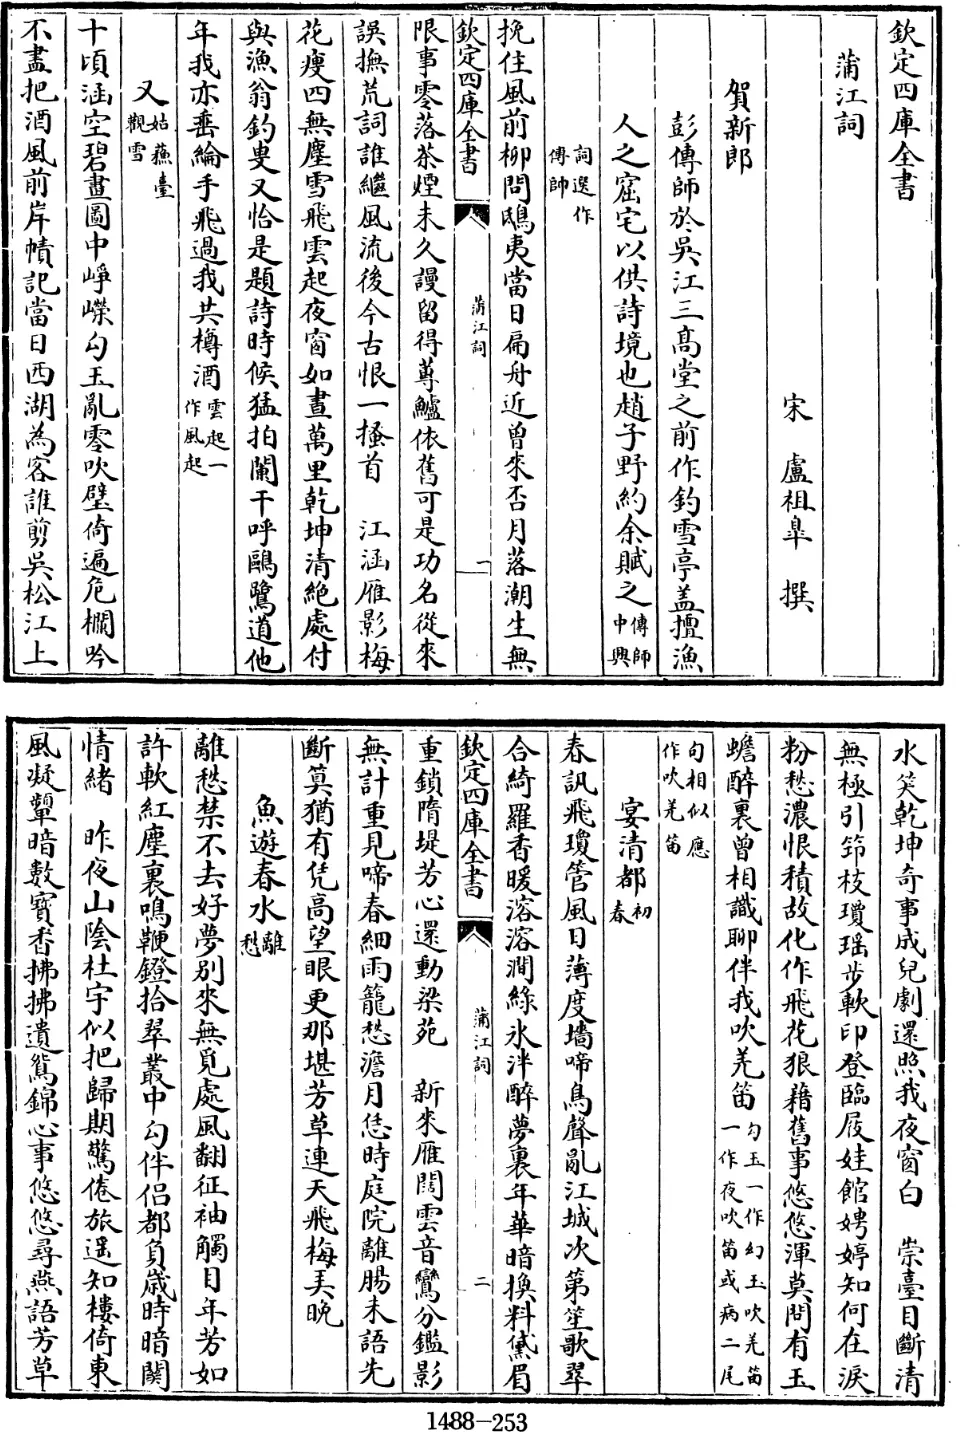 欽定四庫全書
蒲江詞
宋 盧祖臯 撰
賀新郎
彭傳師於吳江三髙堂之前作釣雪亭盖擅漁
人之窟宅以供詩境也趙子野約余賦之傳師中興
詞選作傳帥
挽住風前柳問鴟夷當日扁舟近曾來否月落潮生無
欽定四庫全書 蒲江詞 一
限事零落茶煙未久謾留得蓴鱸依舊可是功名從來
誤撫荒詞誰繼風流後今古恨一搔首 江涵雁影梅
花瘦四無塵雪飛雲起夜窗如晝萬里乾坤清絶處付
與漁翁釣叟又恰是題詩時候猛拍闌干呼鷗鷺道他
年我亦垂綸手飛過我共樽酒雲起一作風起
又姑蘇臺觀雪
十頃涵空碧畫圖中崢嶸勾玉亂零吹壁倚遍危欄吟
不盡把酒風前岸幘記當日西湖為客誰剪吳松江上
水笑乾坤奇事成兒劇還照我夜窗白 崇臺目斷清
無極引笻枝瓊瑶步軟印登臨屐娃館娉婷知何在淚
粉愁濃恨積故化作飛花狼藉舊事悠悠渾莫問有玉
蟾醉裏曾相識聊伴我吹羌笛勾玉一作幻玉吹羌笛一作夜吹笛或病二尾
句相似應作吹羌笛
宴清都初春
春訊飛瓊管風日薄度墻啼鳥聲亂江城次第笙歌翠
合綺羅香暖溶溶澗綠氷泮醉夢裏年華暗換料黛眉
欽定四庫全書 蒲江詞 二
重鎖隋堤芳心還動梁苑 新來雁闊雲音鸞分鑑影
無計重見啼春細雨籠愁澹月恁時庭院離腸未語先
斷算猶有凭高望眼更那堪芳草連天飛梅弄晚
魚遊春水離愁
離愁禁不去好夢別來無覓處風翻征袖觸目年芳如
許軟紅塵裏鳴鞭鐙拾翠叢中勾伴侶都負歲時暗關
情緒 昨夜山陰杜宇似把歸期驚倦旅遥知樓倚東
風凝顰暗數寳香拂拂遺鴛錦心事悠悠尋燕語芳草
1488-253